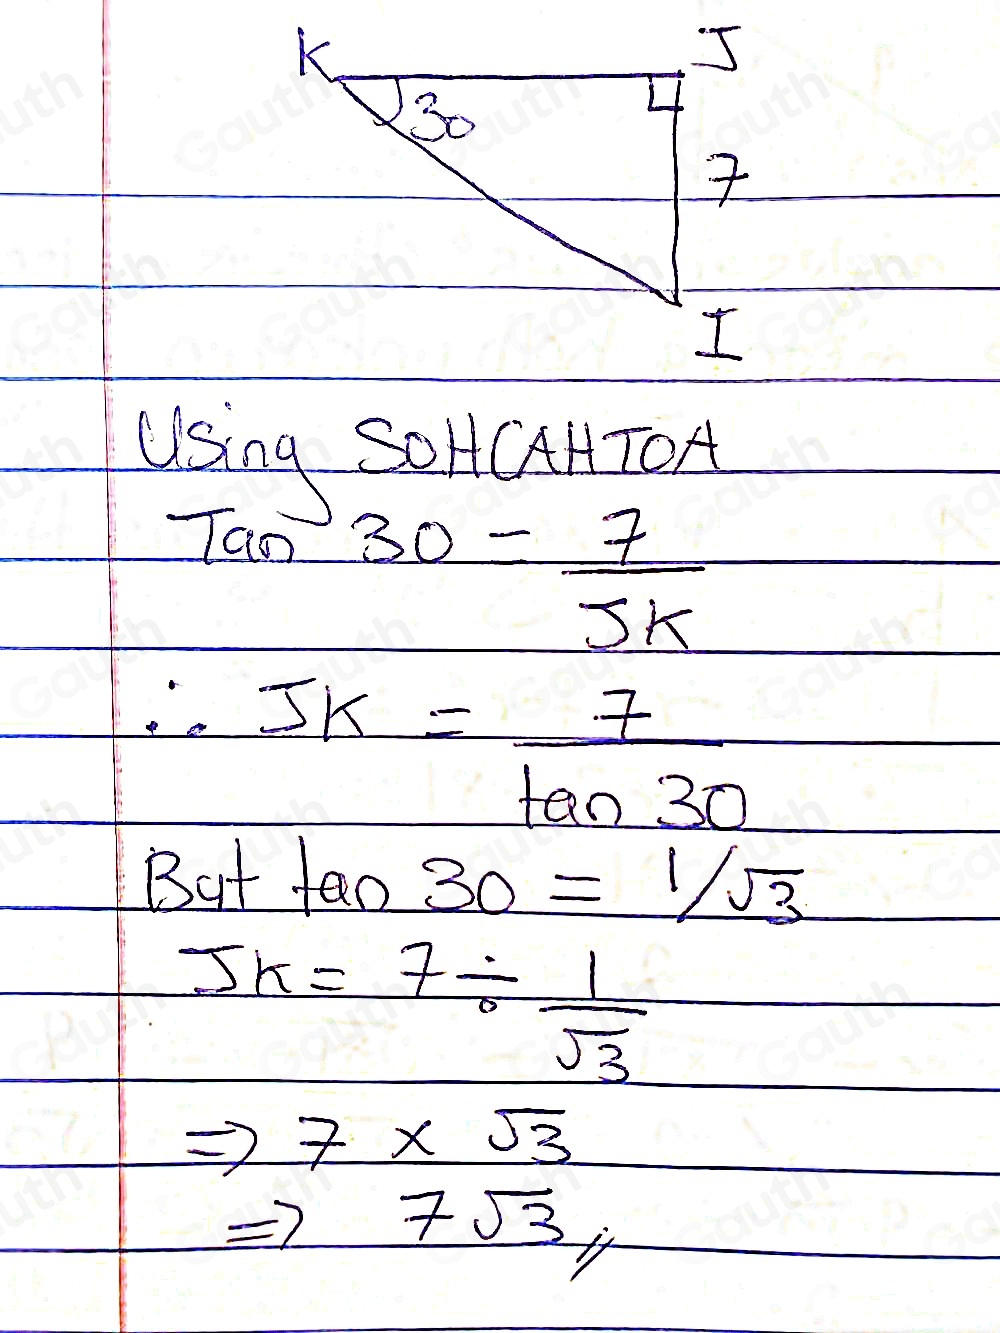 K J
30
7
I
Using SOHCAHTOA
Tan 30 = 7/JK
∴ JK = 7/tan 30
But tan 30 = 1/√3
JK = 7 ÷ 1/√3
⇒ 7 × √3
⇒ 7√3
Gauth